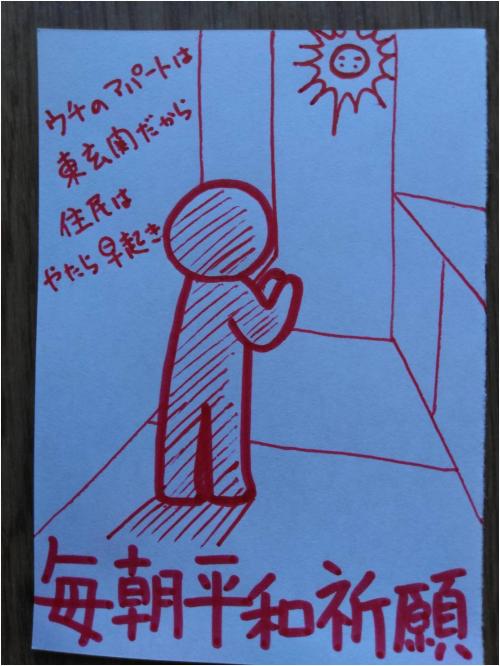 ウチのアパートは
東玄関だから
住民は
やたら早起き
毎朝平和祈願